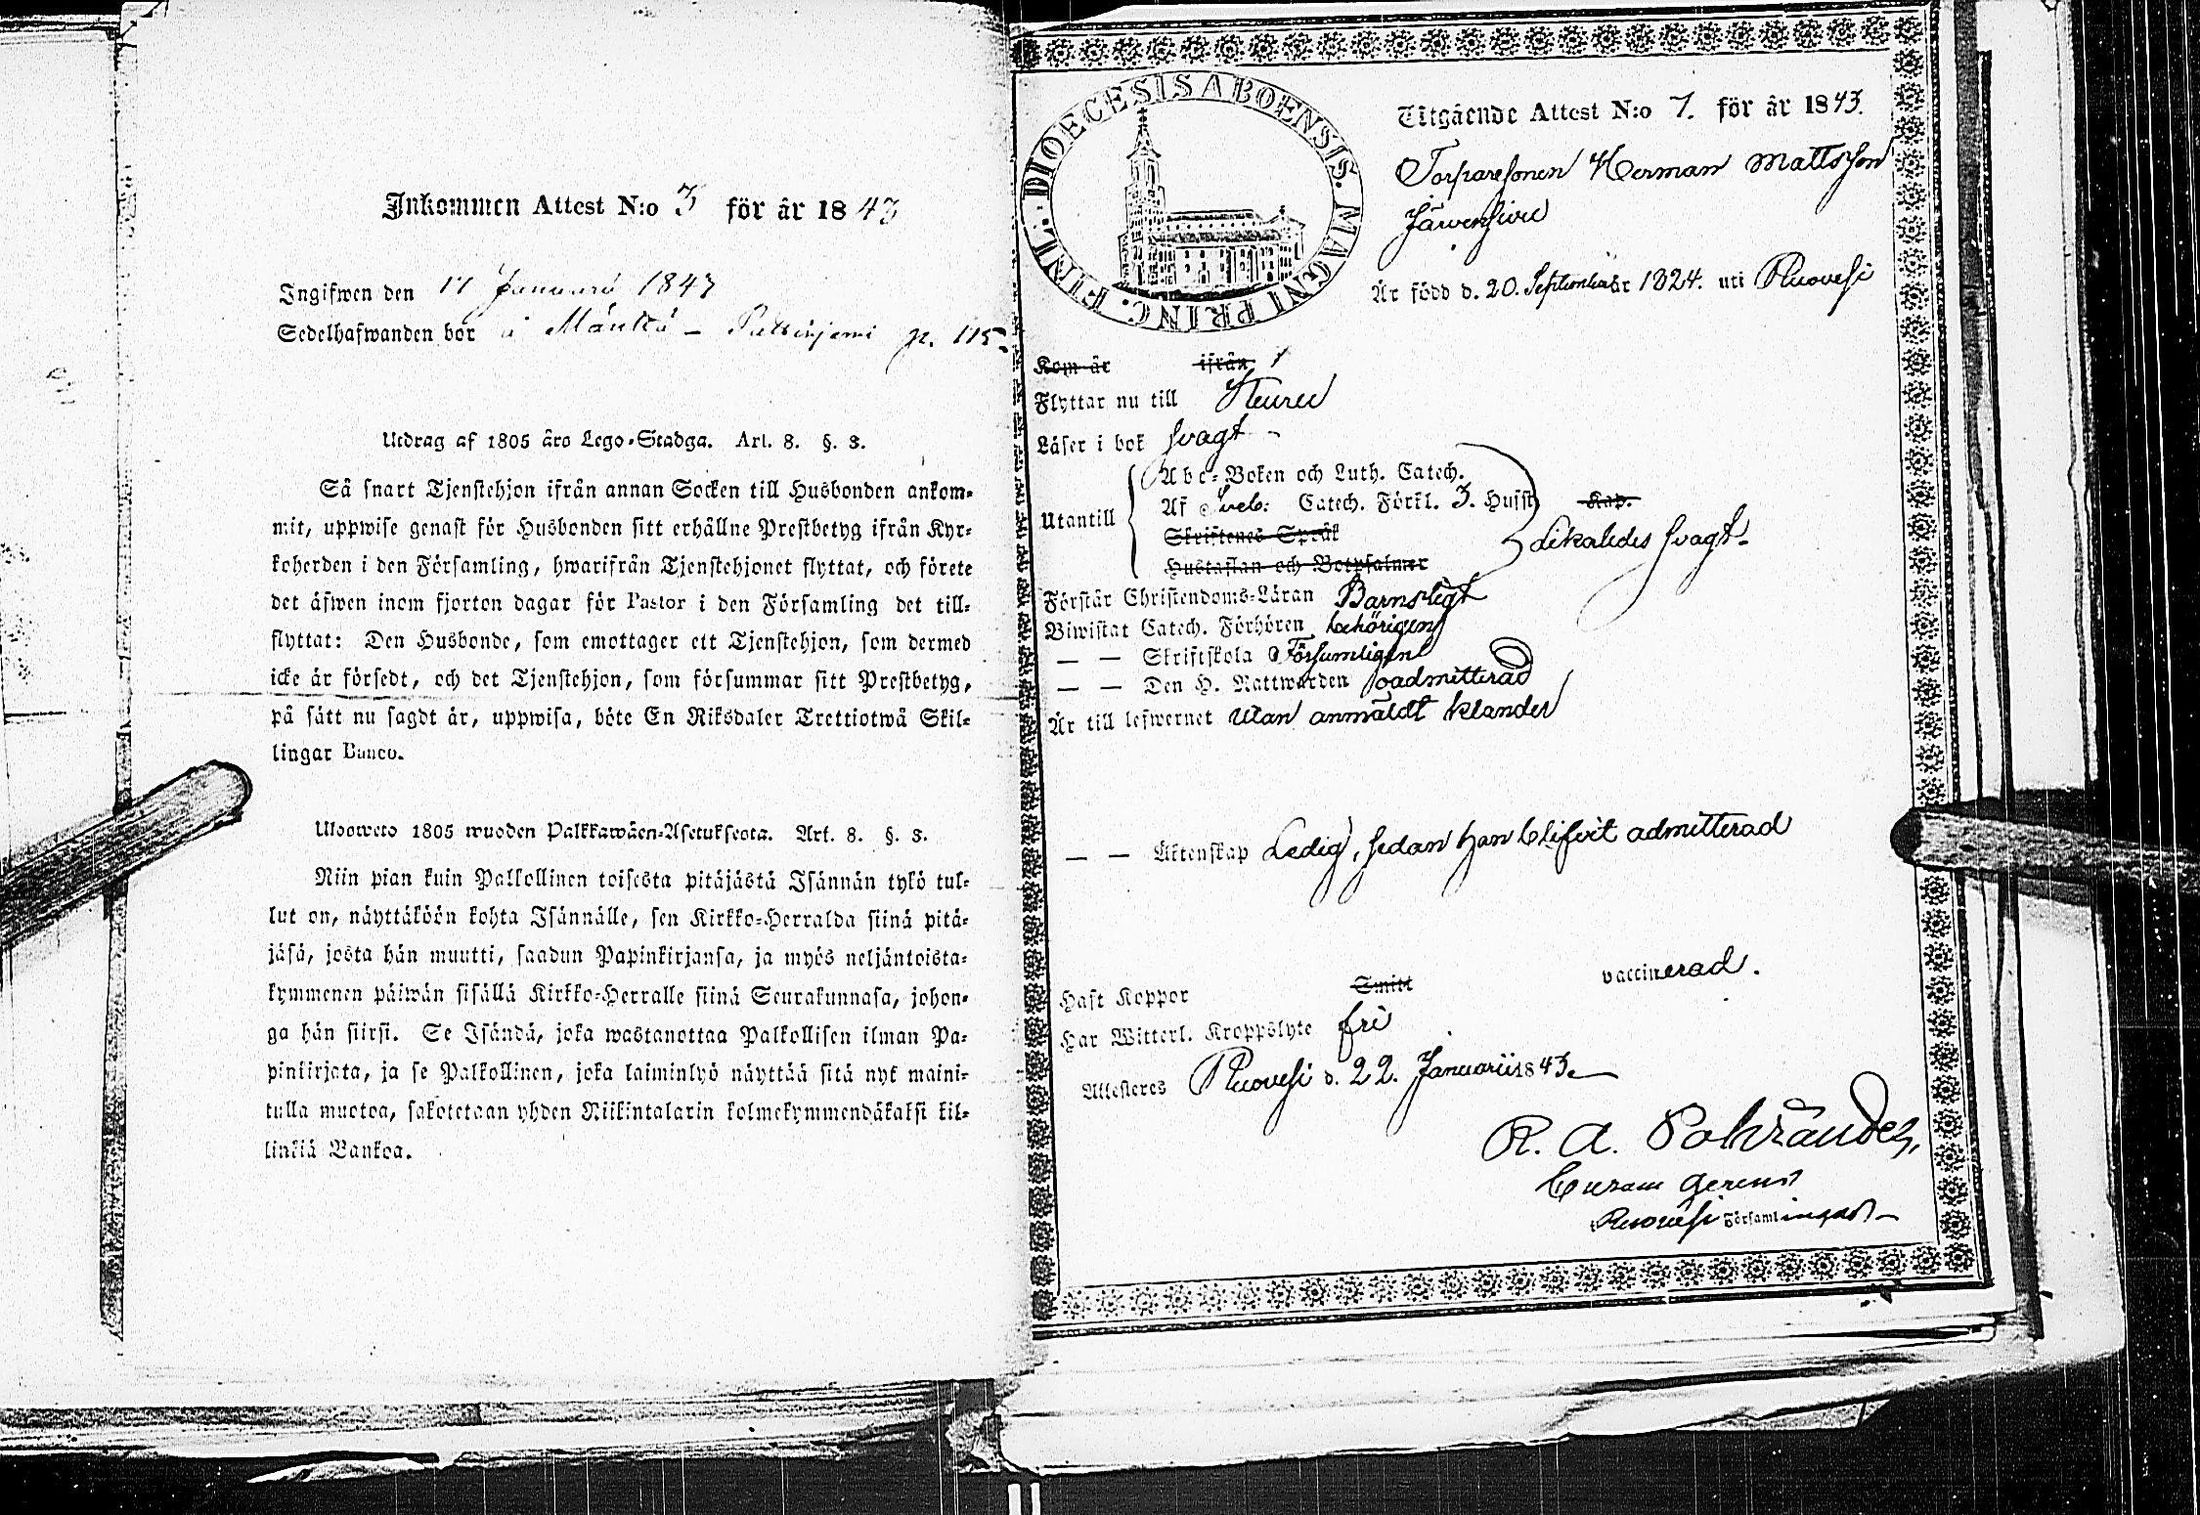 Inkommen Attest N:o 3 för år 1843
Ingifwen den 17 Januarii 1843
Sedelhafwanden bor å Mänttä – p. 115
Utdrag af 1805 åro Lego-Stadga. Art. 8. §. 3.
Så snart Tjenstehjon ifrån annan Socken till Husbonden ankom-
mit, uppwise genast för Husbonden sitt erhållne Prestbetyg ifrån Kyr-
koherden i den Församling, hwarifrån Tjenstehjonet flyttat, och förete
det äfwen inom fjorton dagar för Pastor i den Församling det till-
flyttat: Den Husbonde, som emottager ett Tjenstehjon, som dermed
icke är försedt, och det Tjenstehjon, som försummar sitt Prestbetyg,
på sätt nu sagdt är, uppwisa, böte En Riksdaler Trettiotwå Skil-
lingar Banco.
Ulosweto 1805 wuoden Palkkawäen-Asetuksesta. Art. 8. §. 3.
Niin pian kuin Palkollinen toisesta pitäjästä Isännän tykö tul-
lut on, näyttäköön kohta Isännälle, sen Kirkko-Herralda siinä pitä-
jäsä, josta hän muutti, saadun Papinkirjansa, ja myös neljäntoista-
kymmenen päiwän sisällä Kirkko-Herralle siinä Seurakunnasa, johon-
ga hän siirsi. Se Isändä, joka wastanottaa Palkollisen ilman Pa-
pinkirjata, ja se Palkollinen, joka laiminlyö näyttää sitä nyt maini-
tulla muotoa, sakotetaan yhden Riikintalarin kolmekymmendäkaksi kil-
linkiä Bankoa.
DIOECESIS ABOENSIS. MAGNI PRINC. FINL.
Utgående Attest N:o 7. för år 1843.
Torparesonen Herman Mattsson
Järvensivu
Är född d. 20. September 1824. uti Ruovesi
Kom år ifrån
Flyttar nu till Keuru
Läser i bok svagt
Utantill
Abc-Boken och Luth. Catech.
Af Sveb: Catech. Förkl. 3. Hufst Kap.
Skriftenes Språk
Hustaflan och Botpsalmer
Likaledes svagt
Förstår Christendoms-Läran Barnsligt
Biwistat Catech. Förhören behörigen
— — Skriftskola Försumligen
— — Den H. Nattwarden oadmitterad
Är till lefwernet utan anmäldt klander
— — Äktenskap Ledig, sedan han blifvit admitterad
Haft Koppor Smitt vaccinerad.
Har Witterl. Kroppslyte fri
Attesteres Ruovesi d. 22. Januarii 1843
R. A.
Curam gerens
Ruovesi Församlingar